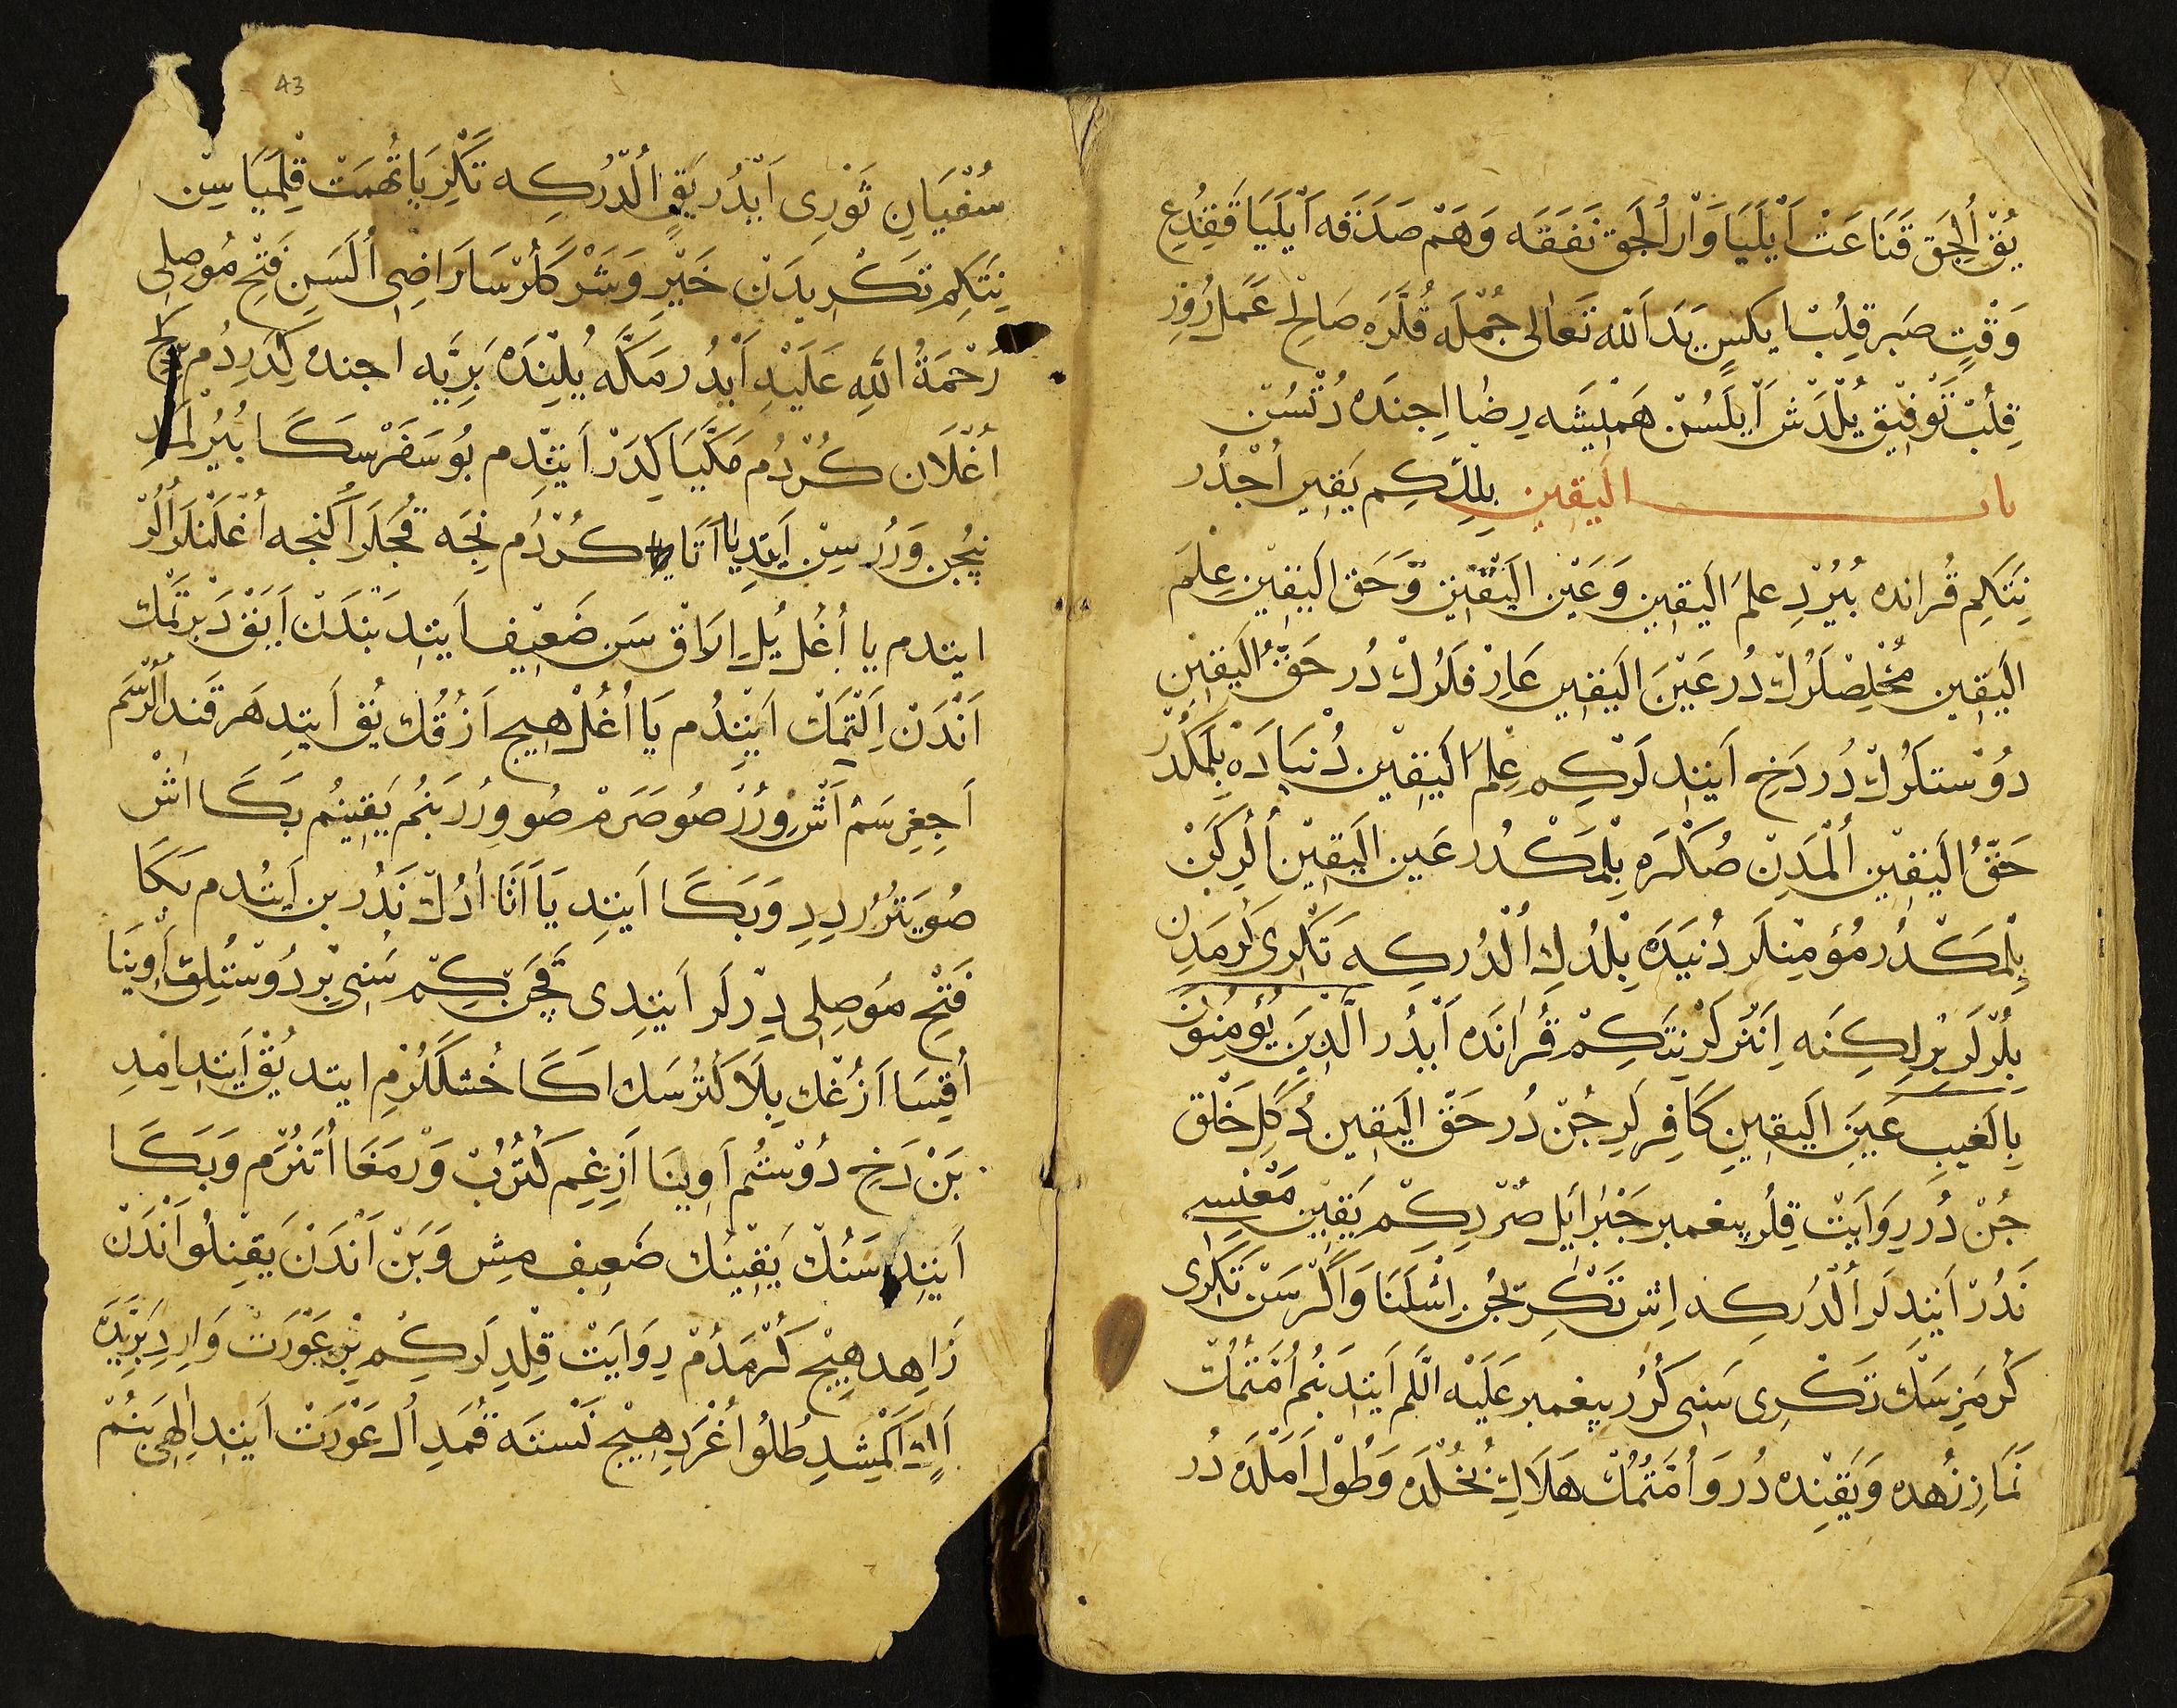 يُقْ اُلِجَقْ قَنَاعَتْ اَيْلَيَا وَارْ اُلْجَقْ نَفَقَه وَهَمْ صَدَقَه اَيْلَيَا
وَقْتِ صَبر قِلُبْ ايكسِ يَدَ الله تَعَالى جُمْلَه قُلْلَرَه صَالِح عَمَل رُوزِ
قِلُبْ تَوْفِيق يُلْدَشْ اَيْلَسُنْ هَمْيِشَه رِضَا اِچنَدَه دُتْسُنْ
باب اليَقِين بِلِلكِم يَقِين اُچْدُر
نِتَكِم قُرانده بُيُرْدِ عِلمَ اَليَقِين وَعَيْن اليَقِين وَحَقَ اليَقِين عِلمَ
اليَقِين مُخْلِصْلَرُكْ دُر عَيْنَ اليَقِين عَارِفْلَرُكْ دُر حَقُّ اليَقِين
دُوْستلَرُكْ دُر دَخِ اَيتدِلَرْكِم عِلمَ اليَقِين دُنْيَادَه بِلمَكْدُر
حَقُّ اليَقِين اُلْمَدِن صُكْرَه بِلْمَكْدُر عَين اليَقِين اُلُركَنْ
بِلْمَكْدُر مُؤمِنلَر دُنيَدَه بِلْدُكِ اُلْدُركِه تَكْرِى كُرمَدِن
بِلُرْلَر بِرْلِكِنَه اِنَنُرلَرْ نِتَكِمْ قُرَانَدَه اَيْدُر الَّذِينَ يُؤمِنُونَ
بِالغَيبِ عَينَ اليَقِين كَافِرلَر چُن دُر حَقّ اليَقِين دُكَلِ خَلْق
چُن دُر رِوَايَتْ قِلُر پيغمبر جَبْرَايِل صُرْدِكِمْ يَقِين مَعْنِسِى
نَدُرْ اَيتدِلَر اُلْدُركِه اِش تَكْرِيچُن اِشْلَنَا وَاكَرْ سَنْ تَكرِى
كُرمَزسَك تَكْرِى سَنِى كُرُر پيغمبر عَلَيْه السَّلم اَيتدِ بَنُم اُمَّتُمُكْ
نَمَازِ زُهده وَيَقِنده دُر وَاُمَّتُمُكْ هَلَاكِ بُخْلَدَه وَطُولِ اَمَلْدَه دُر
سُفْيَانِ ثَوْرِى اَيْدُر يَقِين اُلْدُركِه تَكْرِيَا تُهمَتْ قِلْمَيَاسِن
نِتَكِم تَكْرِيدَن خَيْرِ وَشَرْ كَلُرْسَا رَاضِى اُلَسِن فَتحِ مُوصِلِى
رَحْمَةُ اللهِ عَلَيْهِ اَيْدُر مَكَّه يُلِنِدَه بَرِيَّه اچنده كِدَرِدُم
اُغْلَان كُرْدُم مَكَّيَا كِدَرْ اَيتدِم بُو سَفَرْ سَكَا بُيُرُلْمَدِ
نيچُن وَرُرسِن اَيتدِ يَا اَتَا كُرْدُم نِچَه قُچَلَر اُكُنجه اُغلَنلَر اُلُرْ
ايتدم يَا اُغُل يُل اِرَاق سَن ضَعِيف اَيتدِ بَندَن اَيَق دَبرَتْمَك
اَنْدَن اِلَتْمَكْ اَيتدُم يَا اُغُلْ هِيچ اَزُقُك يُق اَيتدِ هَر قَندَ اُلُرْسَم
اَچِغِرسَمْ اَشْ وِرُر صُوصَرمْ صُو وِرُر بَنُم يَقِينُم بَكَا اَشْ
صُو يَتُرُر دِدِ وَبَكَا اَيتدِ يَا اَتَا اَدُكْ نَدُر بن اَيتُدم بَكَا
فَتْحِ مَوصِلِى دِرلَر اَيتدِى قَچَن كِمْ سَنِى بِر دُوستُلِق اَوِينَا
اُقِيسَا اَزُغُك بِلَا كَلتُرْسَك اَكَا خُشكَلُرْمِ ايتد يُقْ اَيتدِ اِمْدِ
بَنْ دَخِ دُوْستُم اَوِينَا اَزِغِم كَلتُرُبْ وَرْمَغَا اُتَنُرْم وَبَكَا
اَيتدِ سَنُك يَقِينُك ضَعِيف مِش وَبَنْ اَنْدَن يَقِنلُو اَنْدَن
زَاهِد هِيچ كُرْمَدُم رِوَايَتْ قِلْدِلَركِمْ بِر عَوْرَت وَارِدِ بَرِيَّدَه
اَكِن اَكْمِشدِ طُلُو اُغْرَدِ هِيچ نَسنَه قُمَدِ اُل عَوْرَتْ اَيتدِ اِلَهِى بَنُمْ